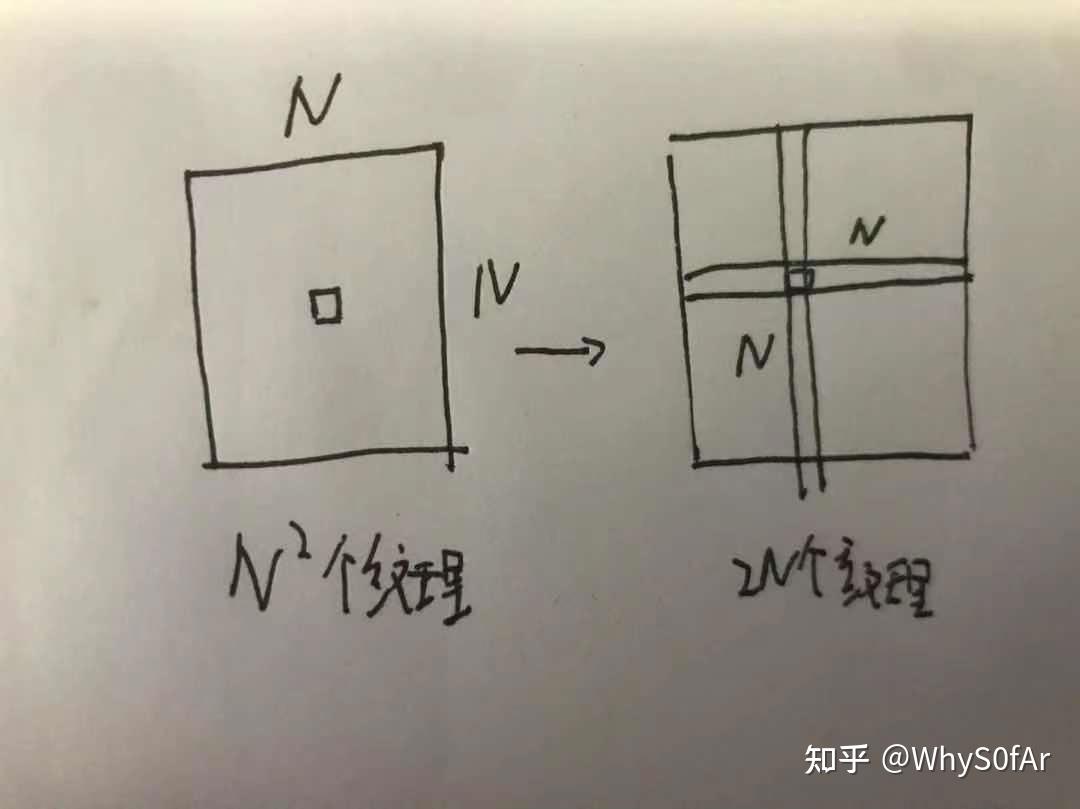 N
N
N
N
N²个纹理
2N个纹理
知乎 @WhyS0fAr